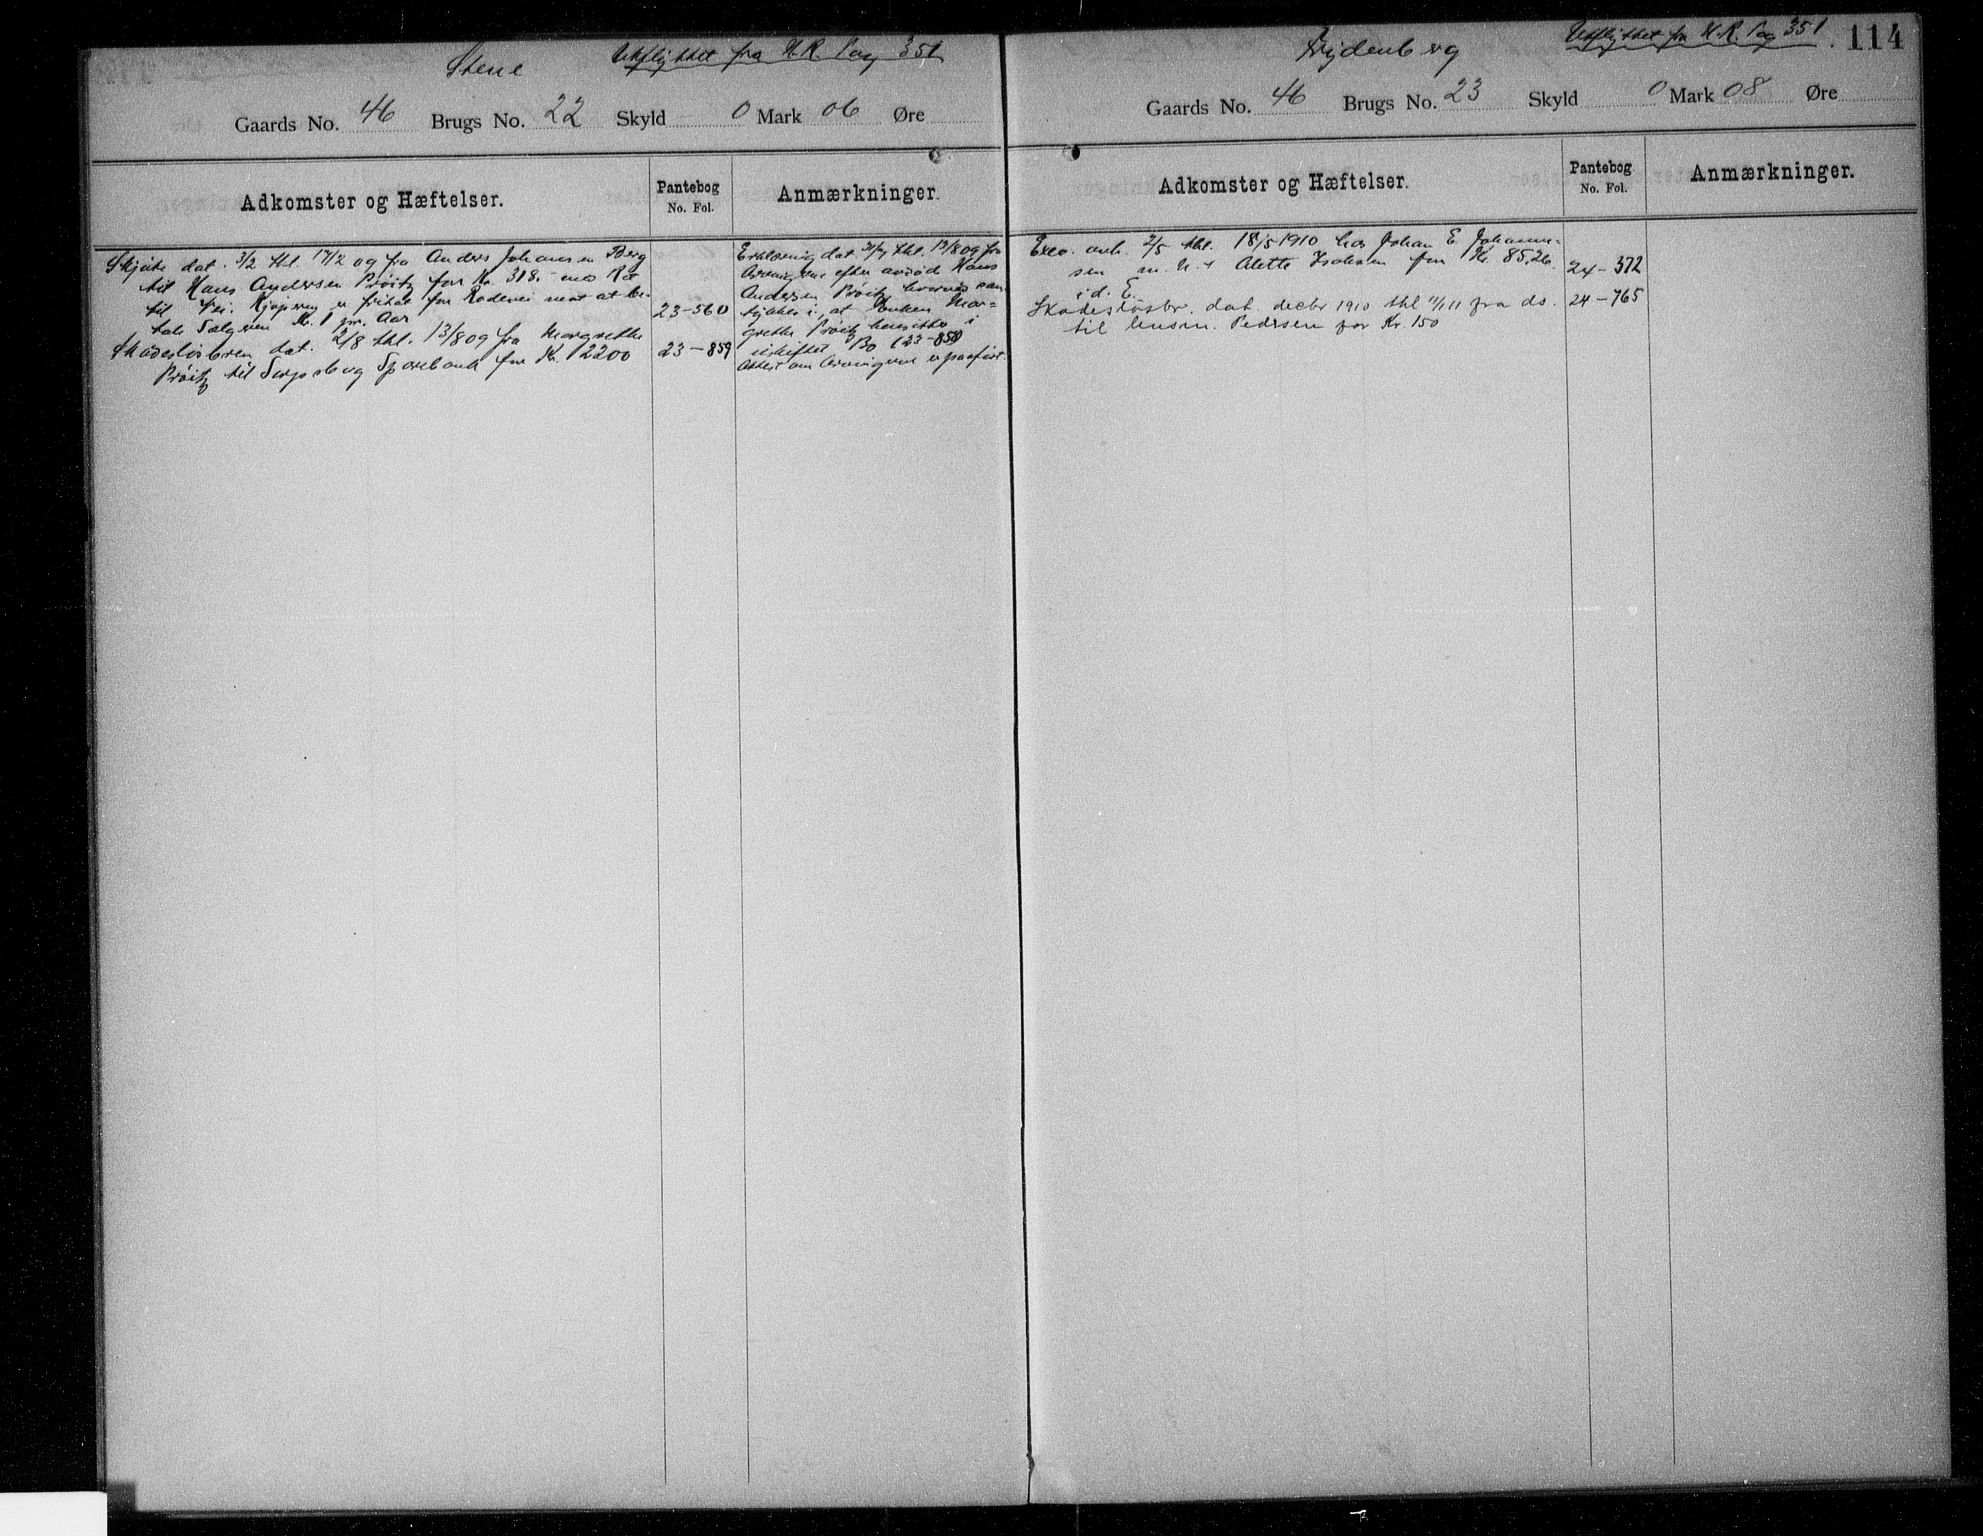 Stene Utflyttet fra H.R. Pag 351
Gaards No. 46 Brugs No. 22 Skyld 0 Mark 06 Øre
Adkomster og Hæftelser. Pantebog No. Fol. Anmærkninger.
Skjøte dat. 3/2 thl. 17/2 09 fra Anders Johansen Berg
til Hans Andersen Prøitz for Kr. 318.- med Ret
til Vei. Kjøperen er fritat for Rodevei mot at be-
tale Sælgeren Kr. 1 pr. Aar 23-560
Skadesløsbrev dat. 2/8 thl. 13/8 09 fra Margrethe
Prøitz til Sarpsborg Sparebank for Kr. 2200 23-859
Erklæring dat. 31/7 thl. 13/8 09 fra
Arvingerne efter avdøde Hans
Andersen Prøitz hvorved sam-
tykkes i, at Enken Mar-
grethe Prøitz hensitter i
uskiftet Bo (23-858)
Attest om Arvingerne er paaført.
Utflyttet fra H.R. Pag 351. 114
Gaards No. 46 Brugs No. 23 Skyld 0 Mark 08 Øre
Adkomster og Hæftelser. Pantebog No. Fol. Anmærkninger.
Exec. anh. 2/5 thl. 18/5 1910 hos Johan E. Johanne-
sen m. h. t. Alette Isaksen for Kr. 85,26 24-372
i d. E.
Skadesløsbr. dat. decbr 1910 thl 11/1 11 fra ds. 24-765
til Pedersen for Kr. 150